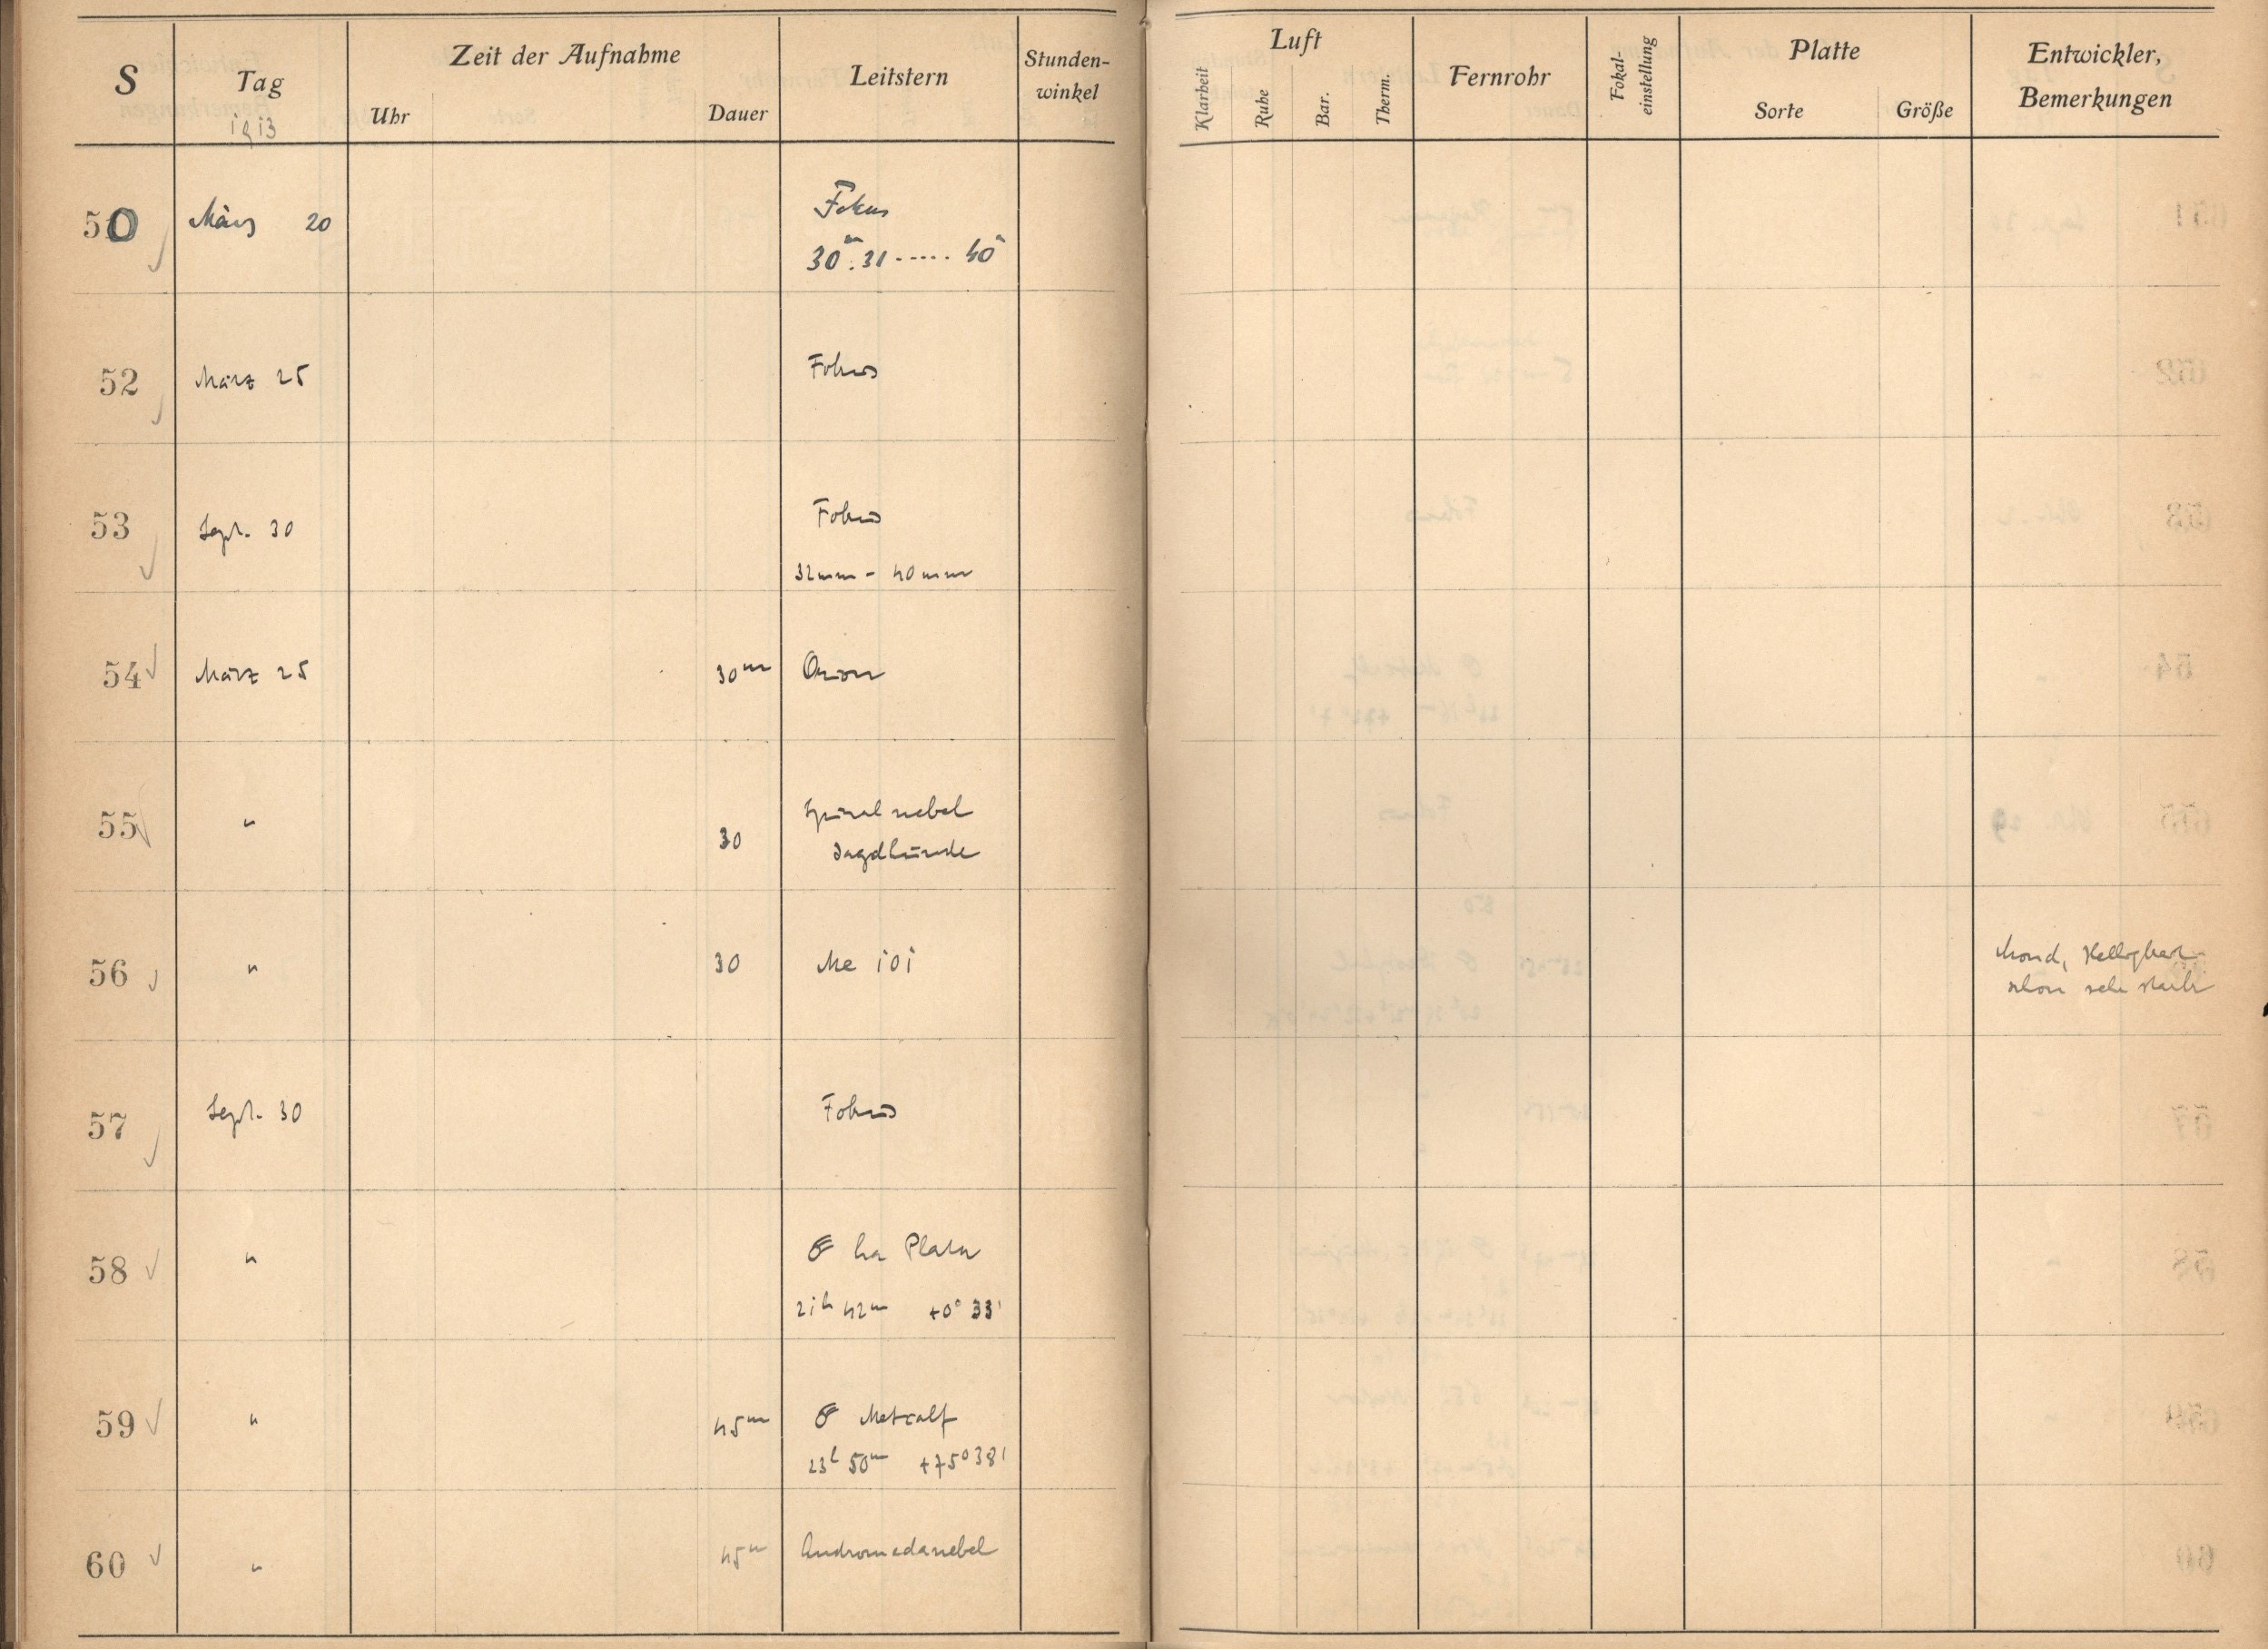 S Tag Zeit der Aufnahme Leitstern Stunden-winkel Luft Fernrohr Fokal-einstellung Platte Entwickler, Bemerkungen
1913 Uhr Dauer Klarheit Ruhe Bar. Therm. Sorte Größe
50 März 20 Fokus
30m. 31 ····· 40m
52 März 25 Fokus
53 Sept. 30 Fokus
32mm - 40mm
54 März 25 30m Orion
55 " 30 Spiralnebel
Jagdhunde
56 " 30 Me 101 Mond, Helligkeit
schon sehr stark
57 Sept. 30 Fokus
58 " ☄ La Plata
21h 42m +0° 33'
59 " 45m ☄ Metcalf
23h 50m +75° 38'
60 " 45m Andromedanebel